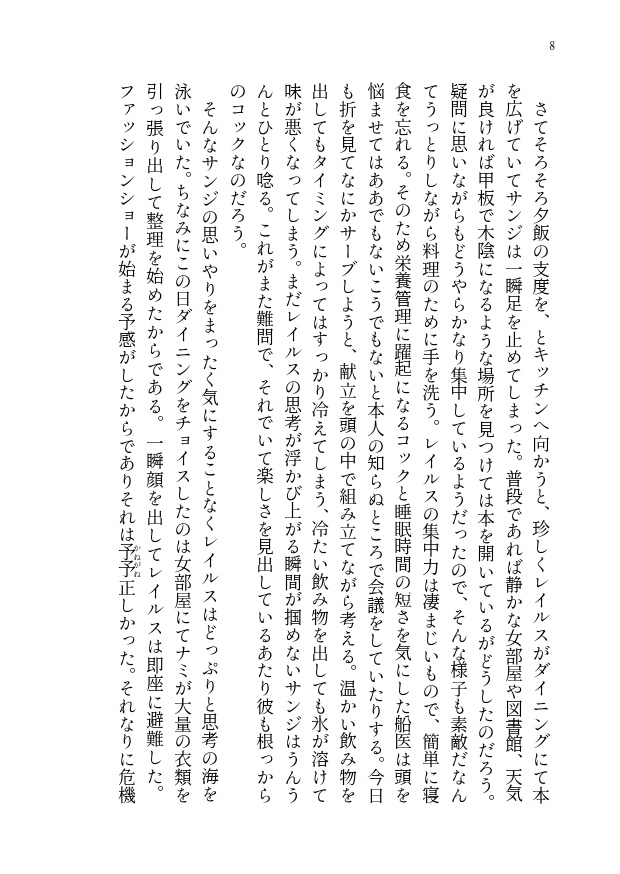 8
さてそろそろ夕飯の支度を、とキッチンへ向かうと、珍しくレイルスがダイニングにて本
を広げていてサンジは一瞬足を止めてしまった。普段であれば静かな女部屋や図書館、天気
が良ければ甲板で木陰になるような場所を見つけては本を開いているがどうしたのだろう。
疑問に思いながらもどうやらかなり集中しているようだったので、そんな様子も素敵だなん
てうっとりしながら料理のために手を洗う。レイルスの集中力は凄まじいもので、簡単に寝
食を忘れる。そのため栄養管理に躍起になるコックと睡眠時間の短さを気にした船医は頭を
悩ませてはああでもないこうでもないと本人の知らぬところで会議をしていたりする。今日
も折を見てなにかサーブしようと、献立を頭の中で組み立てながら考える。温かい飲み物を
出してもタイミングによってはすっかり冷えてしまう、冷たい飲み物を出しても氷が溶けて
味が悪くなってしまう。まだレイルスの思考が浮かび上がる瞬間が掴めないサンジはうんう
んとひとり唸る。これがまた難問で、それでいて楽しさを見出しているあたり彼も根っから
のコックなのだろう。
そんなサンジの思いやりをまったく気にすることなくレイルスはどっぷりと思考の海を
泳いでいた。ちなみにこの日ダイニングをチョイスしたのは女部屋にてナミが大量の衣類を
引っ張り出して整理を始めたからである。一瞬顔を出してレイルスは即座に避難した。
ファッションショーが始まる予感がしたからでありそれは予予正しかった。それなりに危機
かねがね